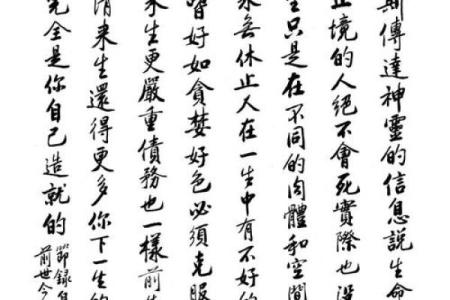 斯傳達神靈的信息說生命
止境的人絕不會死實際也沒
生只是在不同的肉體和空間
永無休止人在一生中有不好的
習好如貪婪好色必須克服
來生更嚴重債務也一樣前生
清來生還得更多你下一生的
完全是你自己造就的
節錄自
前世今